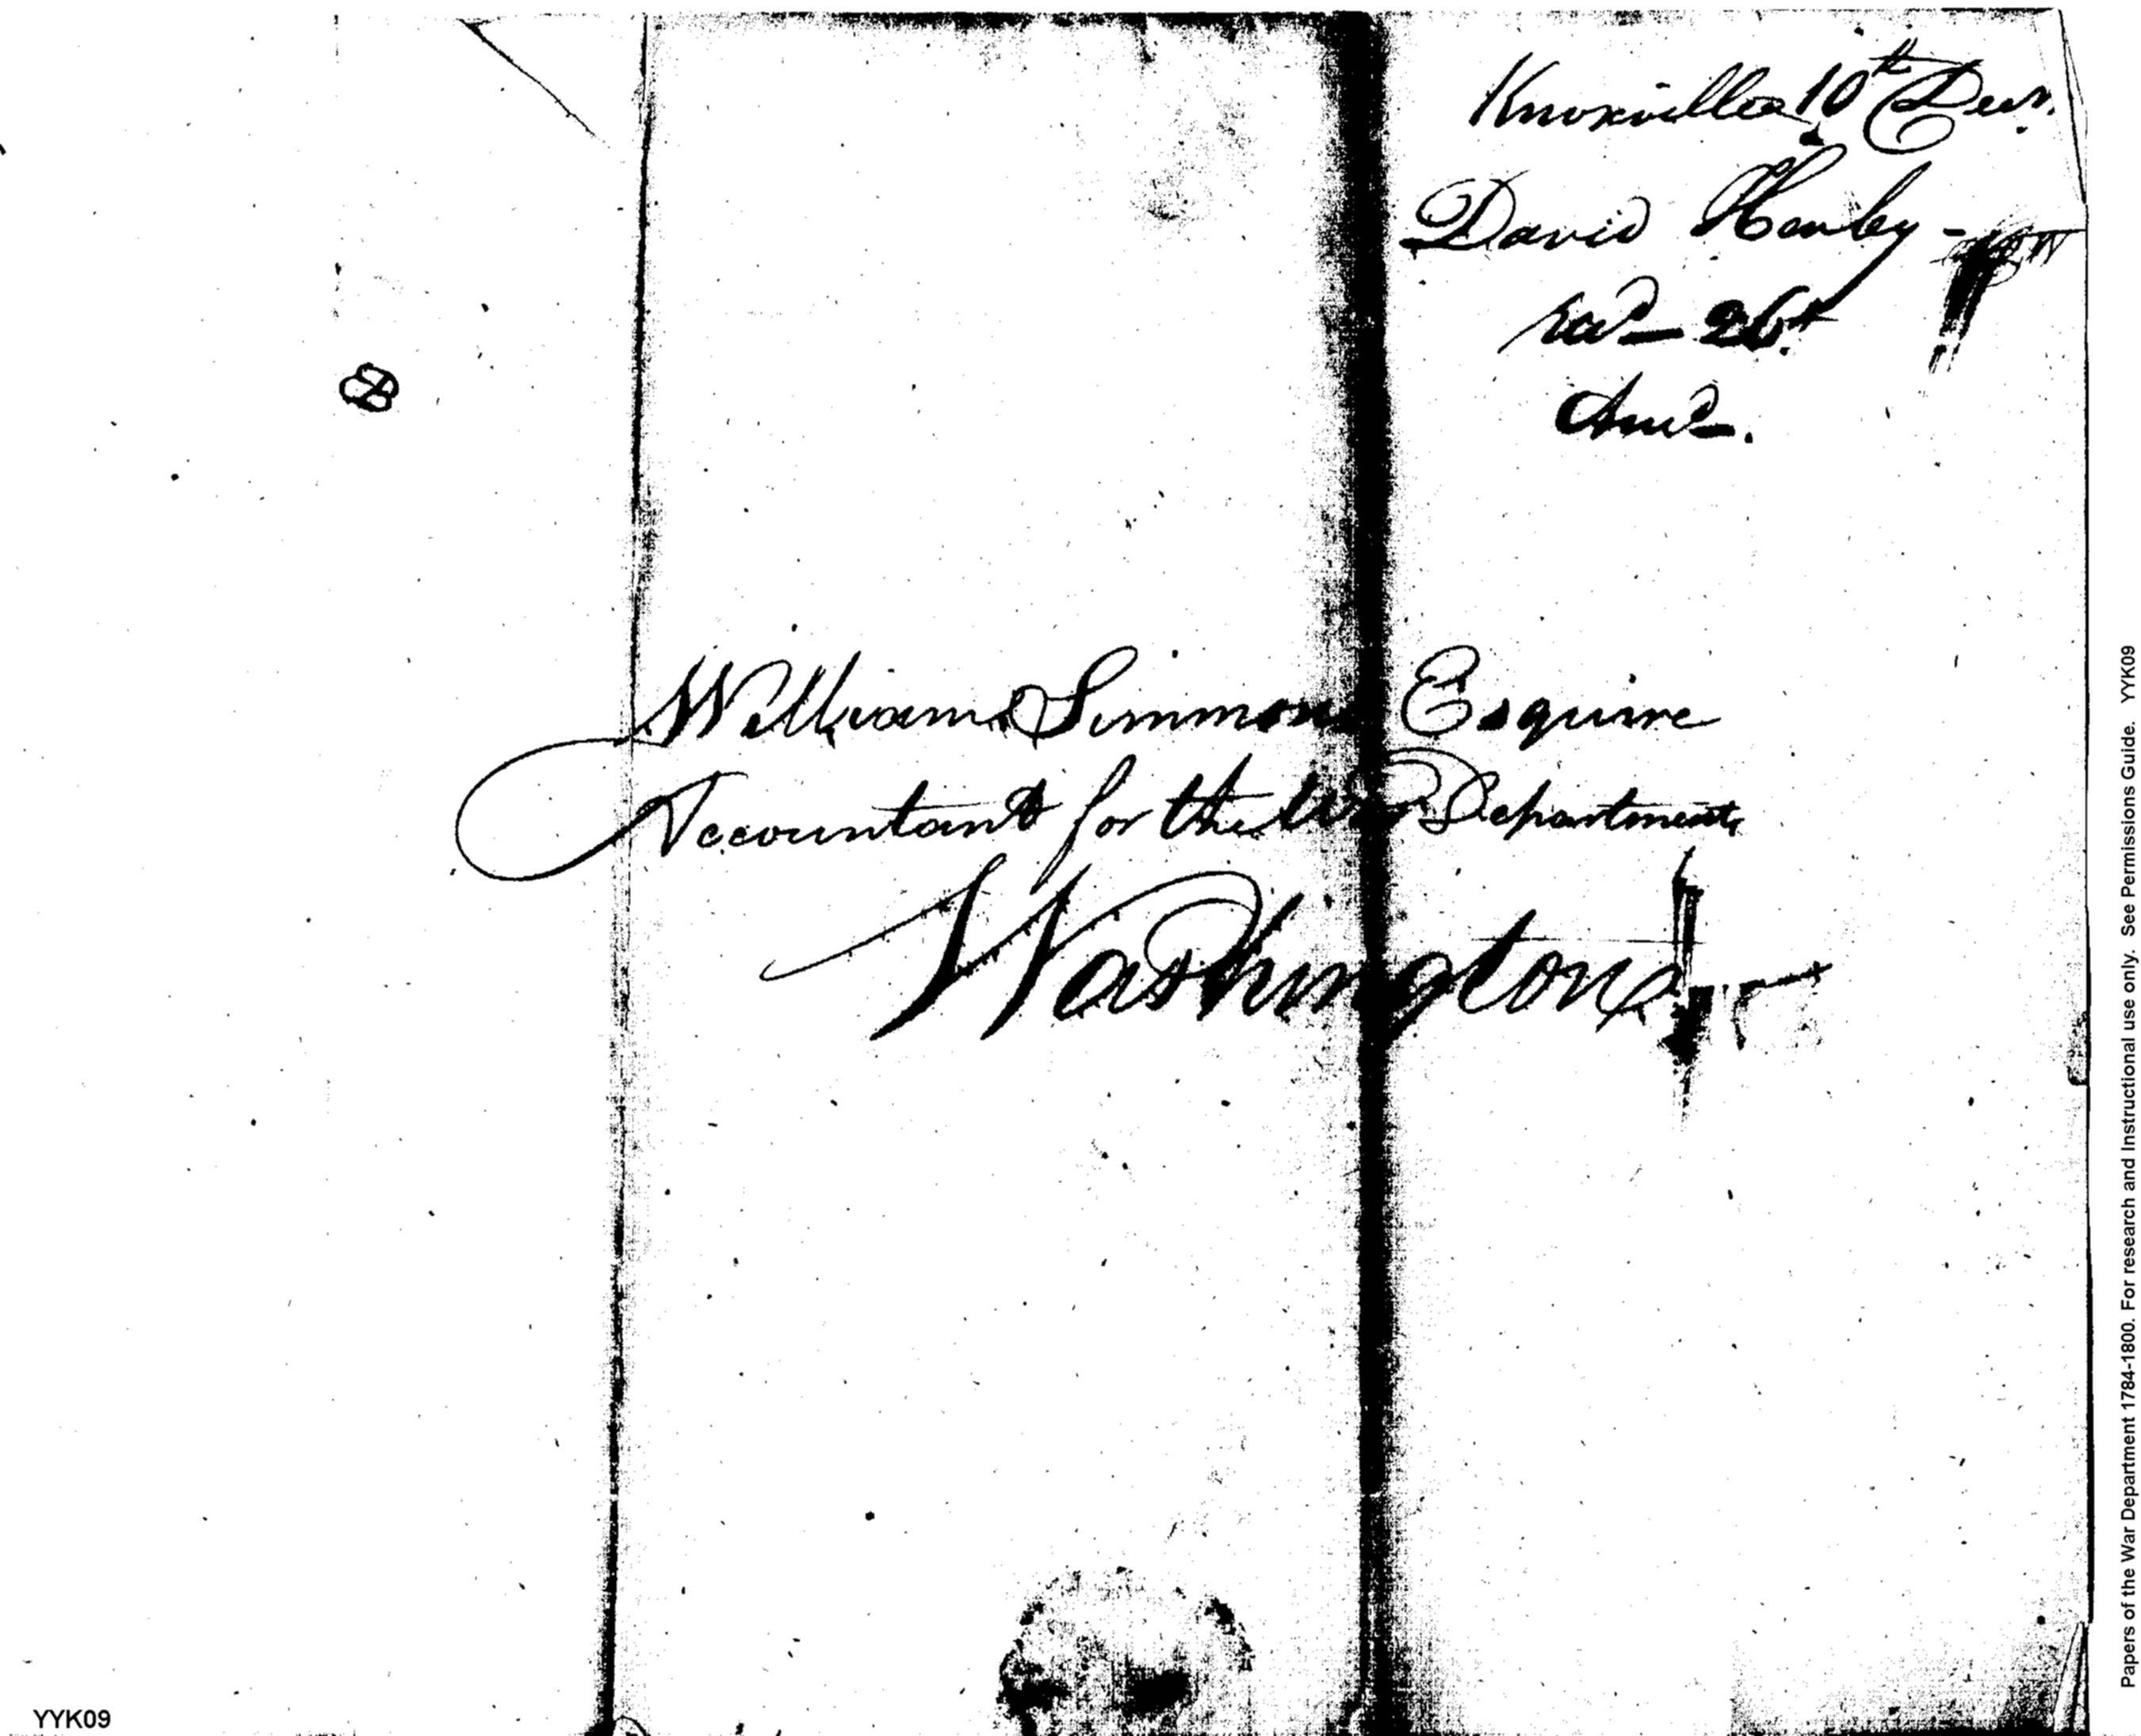 Knoxville 10th Decr.
David Henley -
recd - 26t
Ansd -.
William Simmons Esquire
Accountant for the War Department
Washington
YYK09
Papers of the War Department 1784-1800. For research and Instructional use only. See Permissions Guide. YYK09